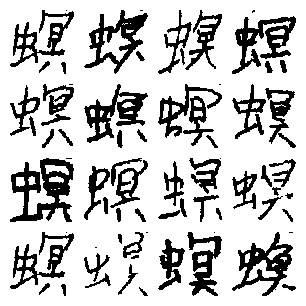 螟螟螟螟
螟螟螟螟
螟螟螟螟
螟螟螟螟